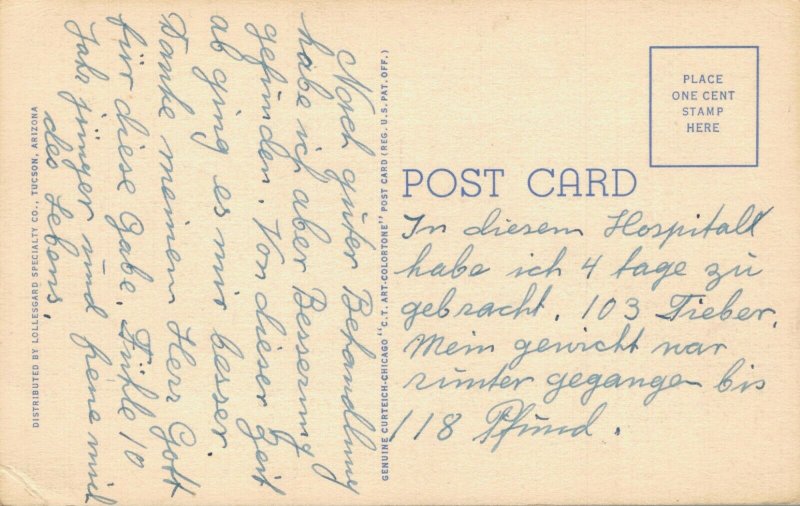 PLACE
ONE CENT
STAMP
HERE
POST CARD
In diesem Hospital
habe ich 4 tage zu
gebracht. 103 Fieber.
Mein gewicht war
runter gegangen bis
118 Pfund.
GENUINE CURTEICH-CHICAGO "C.T. ART-COLORTONE" POST CARD (REG. U.S. PAT. OFF.)
Nach guter Behandlung
habe ich aber Besserung
gefunden. Von dieser Zeit
ab ging es mir besser.
Danke meinem Herr Gott
für diese Gabe. Fühle 10
Jahr jünger und freue mich
des Lebens.
DISTRIBUTED BY LOLLESGARD SPECIALTY CO., TUCSON, ARIZONA